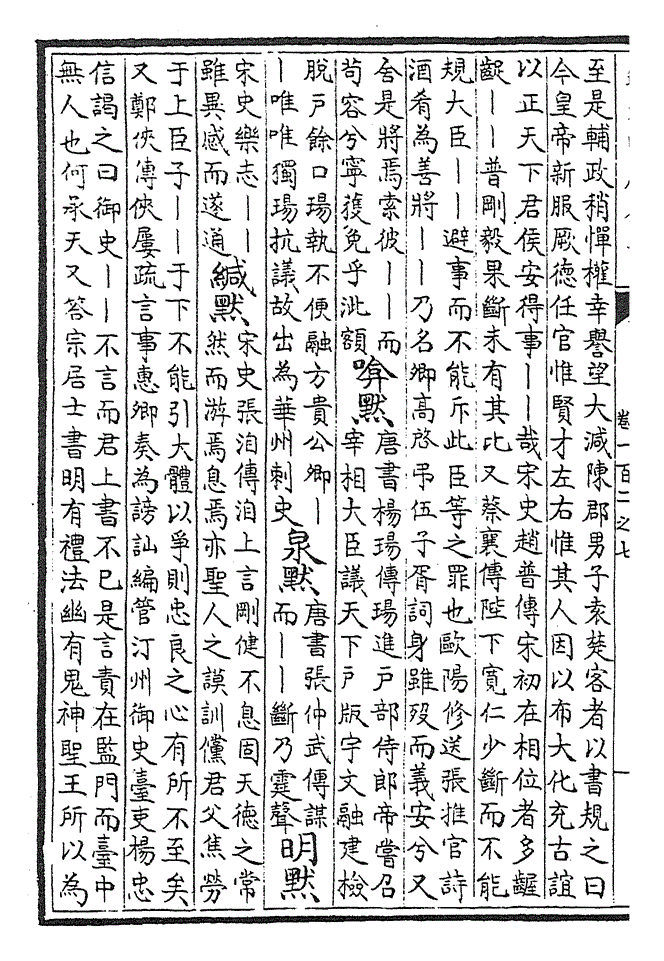 卷一百二之七
至是輔政稍憚權幸譽望大減陳郡男子袁楚客者以書規之曰
今皇帝新服厥德任官惟賢才左右惟其人因以布大化充古誼
以正天下君侯安得事――哉宋史趙普傳宋初在相位者多齷
齪――普剛毅果斷未有其比又蔡襄傳陛下寬仁少斷而不能
規大臣――避事而不能斥此臣等之罪也歐陽修送張推官詩
酒肴為善將――乃名卿高啓弔伍子胥詞身雖歿而義安兮又
舍是將焉索彼――而
苟容兮寧獲免乎泚額
默
唐書楊瑒傳瑒進戶部侍郎帝嘗召
宰相大臣議天下戶版宇文融建檢
脫戶餘口瑒執不便融方貴公卿―
―唯唯獨瑒抗議故出為華州刺史
泉默
唐書張仲武傳謀
而――斷乃霆聲
明默
宋史樂志――
雖異感而遂通
緘默
宋史張洎傳洎上言剛健不息固天德之常
然而游焉息焉亦聖人之謨訓儻君父焦勞
于上臣子――于下不能引大體以爭則忠良之心有所不至矣
又鄭俠傳俠屢疏言事惠卿奏為謗訕編管汀州御史臺吏楊忠
信謁之曰御史――不言而君上書不已是言責在監門而臺中
無人也何承天又答宗居士書明有禮法幽有鬼神聖王所以為